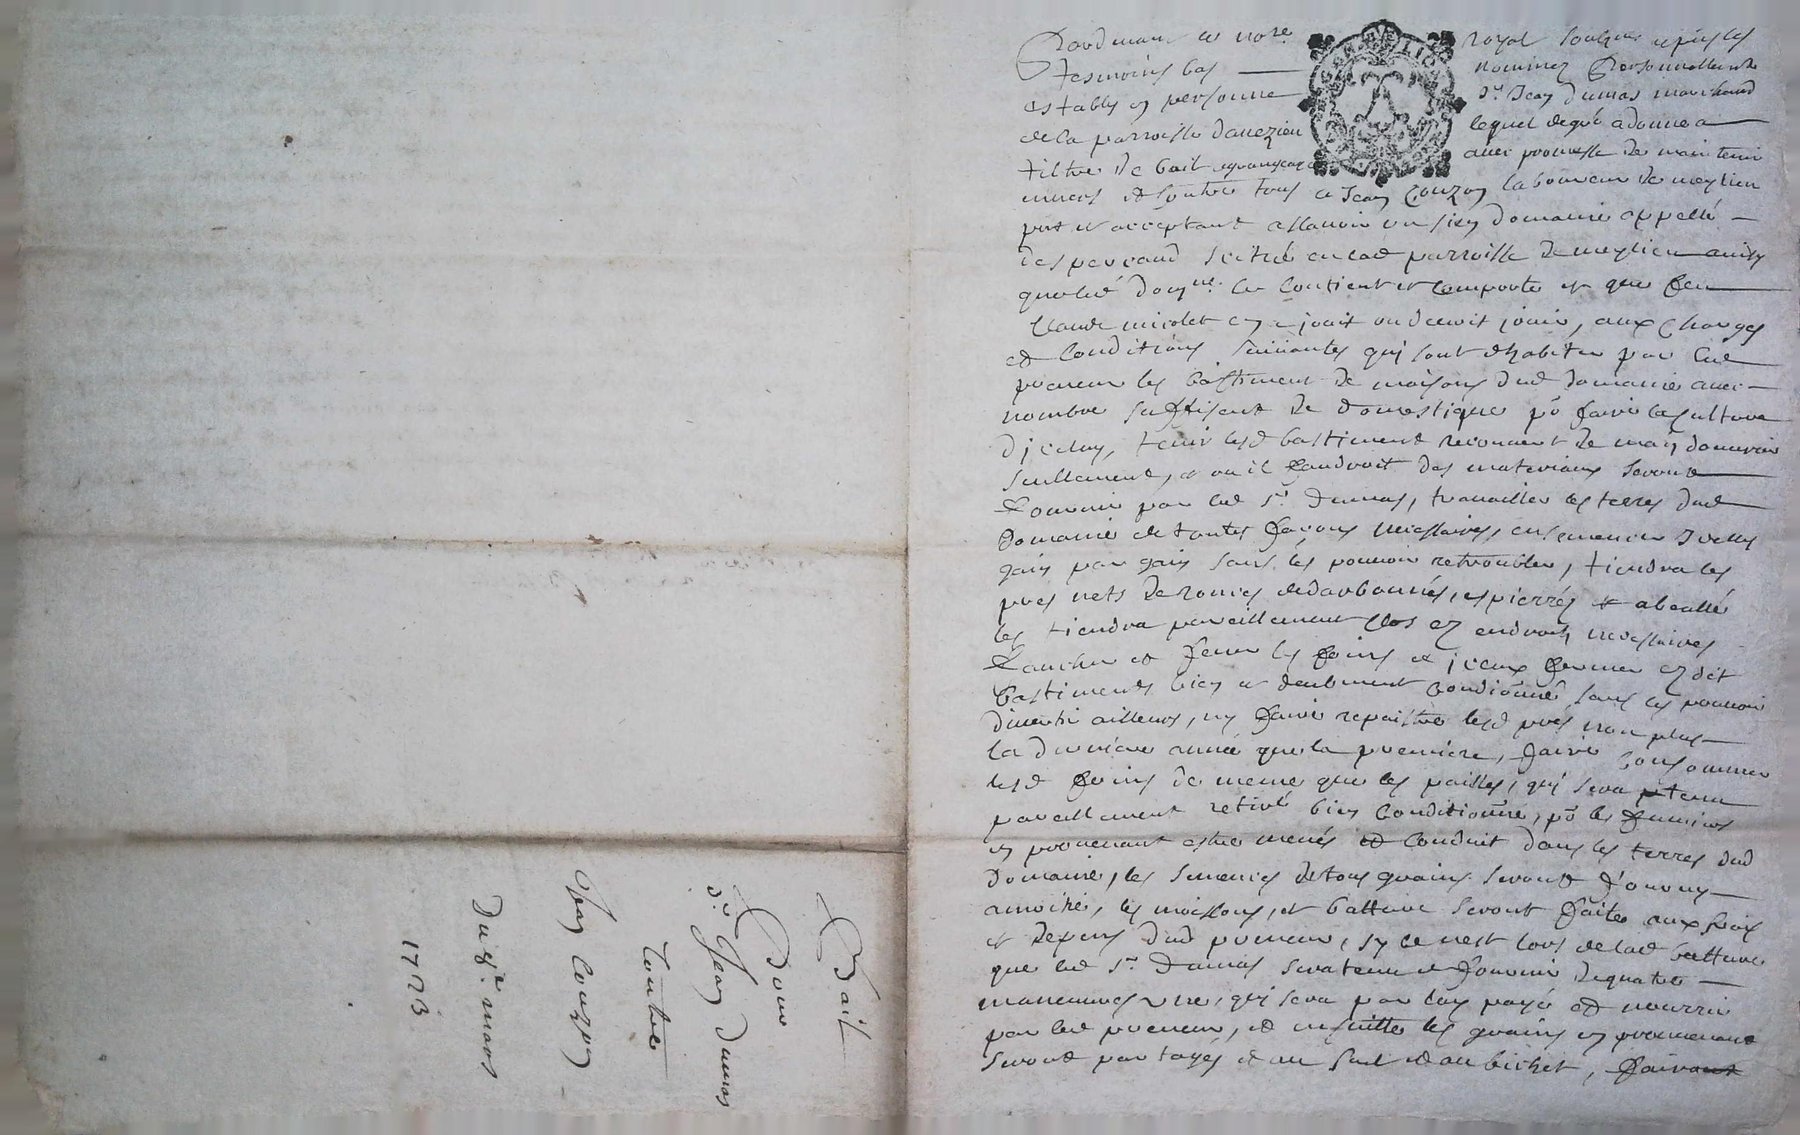 Pardevant le no.re royal soubz.né et pns les
tesmoings bas nommez personnellement
estably en personne s.r Jean Dumas marchand
de la parroisse davezieu lequel de gré a donné a
tiltre de bail agrangeage avec promesse de maintenir
envers et contre tous a Jean Couzon laboureur de meylieu
pnt et acceptant assavoir un sien domaine appellé
des peuraud scittué en lad parroisse de meylieu ainsy
quoled doma.ne se contient et comporte et que feu
Claude micolet en a jouit ou devoit jouir, aux charges
et conditions suivantes qui sont dhabiter par led
preneur les bastiment de maisons dud domaine avec
nombre suffisent de domestique po.r faire la culture
dicelluy, tenir lesd bastiment recouvert de main douvrier
seullement, et ou il faudroit des materiaux seront
fourni par led s.r Dumas, travailler les terres dud
Domaine de toutes façons necessaires, ensemencer icelles
gain par gain sans les pouvoir retroubler, tiendra les
prés nets de ronces et darbonnés, espierrés et abeallé
les tiendra pareillement clos es endroits necessaires
faucher et fener les foins et iceux fermer es dit
bastiments bien et deubment conditionné sans les pouvoir
divertir ailleurs, ny faire repaistre lesd prés non plus
la derniere année que la premiere, faire consommer
lesd foins de meme que les pailles, qui sera tenu
pareillement retiré bien conditionné, po.r les fumiers
en provenant estre menés et conduit dans les terres dud
Domaine, les semences de tous grains seront fournys
a moitié, les moissons, et batture seront faites aux frais
et depens dud preneur, sy ce nest lors de lad batture
que led s.r Dumas sera tenu de fournir de quatre
maneuvres une, qui sera par luy payé et nourrie
par led preneur, et ensuitte les grains en provenant
seront partagés et au suel et au bichet, fairont
Bail
Pour
s.r Jean Dumas
Contre
Jean Couzon
Du 8.e mars
1723